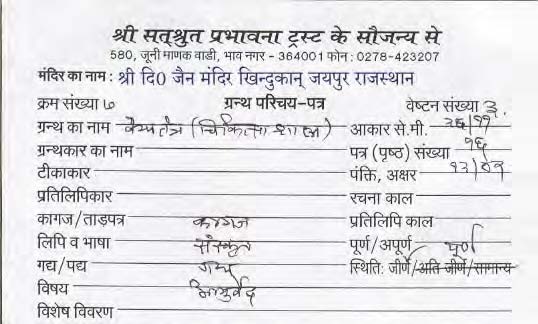 श्री सतश्रुत प्रभावना ट्रस्ट के सौजन्य से
580, जूनी माणक वाडी, भाव नगर - 364001 फोन : 0278-423207
मंदिर का नाम : श्री दि0 जैन मंदिर खिन्दुकान् जयपुर राजस्थान
क्रम संख्या ७ ग्रन्थ परिचय-पत्र वेष्टन संख्या ३.
ग्रन्थ का नाम (चिकित्सा शास्त्र) आकार से.मी.
ग्रन्थकार का नाम पत्र (पृष्ठ) संख्या १६
टीकाकार पंक्ति, अक्षर
प्रतिलिपिकार रचना काल
कागज/ताड़पत्र कागज प्रतिलिपि काल
लिपि व भाषा संस्कृत पूर्ण/अपूर्ण पूर्ण
गद्य/पद्य गद्य स्थिति: जीर्ण/अति जीर्ण/सामान्य
विषय आयुर्वेद
विशेष विवरण